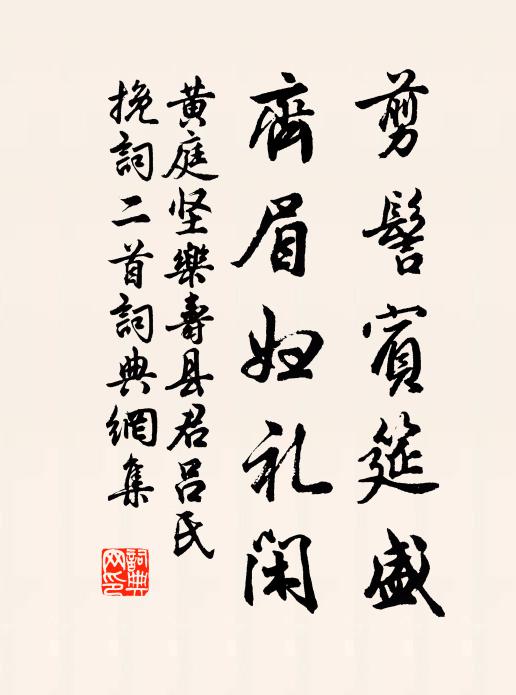 剪髻賓筵盛
齊眉婦礼閑
黄庭坚樂壽县君呂氏
挽詞二首詞典網集
詞典网印